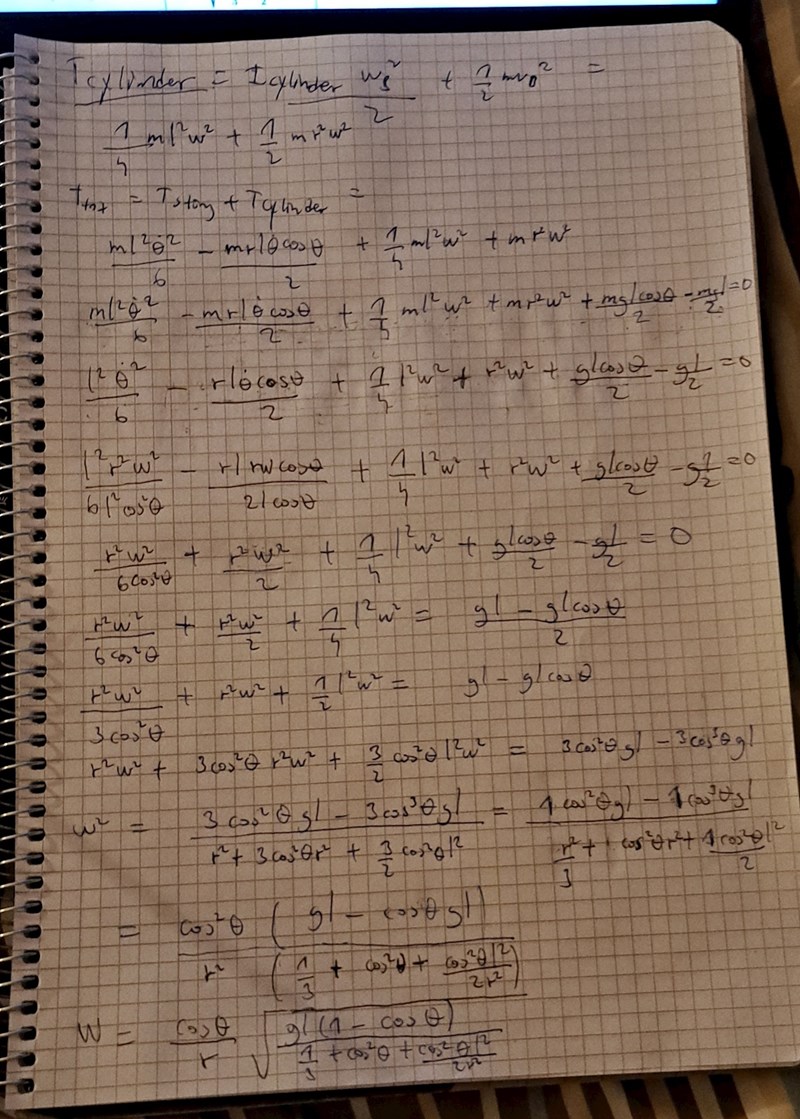 T cylinder = I cylinder ω_s² / 2 + 1/2 mv₀² =
1/4 ml²ω² + 1/2 mr²ω²
T_tot = T_stang + T_cylinder =
ml²θ̇²/6 - mrlθ̇cosθ/2 + 1/4 ml²ω² + mr²ω²
ml²θ̇²/6 - mrlθ̇cosθ/2 + 1/4 ml²ω² + mr²ω² + mglcosθ/2 - mgl/2 = 0
l²θ̇²/6 - rlθ̇cosθ/2 + 1/4 l²ω² + r²ω² + glcosθ/2 - gl/2 = 0
l²r²ω²/6l²cos²θ - rlrωcosθ/2lcosθ + 1/4 l²ω² + r²ω² + glcosθ/2 - gl/2 = 0
r²ω²/6cos²θ + r²ω²/2 + 1/4 l²ω² + glcosθ/2 - gl/2 = 0
r²ω²/6cos²θ + r²ω²/2 + 1/4 l²ω² = gl - glcosθ/2
r²ω²/3cos²θ + r²ω² + 1/2 l²ω² = gl - glcosθ
r²ω² + 3cos²θ r²ω² + 3/2 cos²θ l²ω² = 3cos²θgl - 3cos³θgl
ω² = 3cos²θgl - 3cos³θgl / r² + 3cos²θr² + 3/2 cos²θl² = 1cos²θgl - 1cos³θgl / r²/3 + 1cos²θr² + 1cos²θl²/2
= cos²θ (gl - cosθgl) / r² (1/3 + cos²θ + cos²θl²/2r²)
ω = cosθ/r √(gl(1 - cosθ) / 1/3 + cos²θ + cos²θl²/2r²)